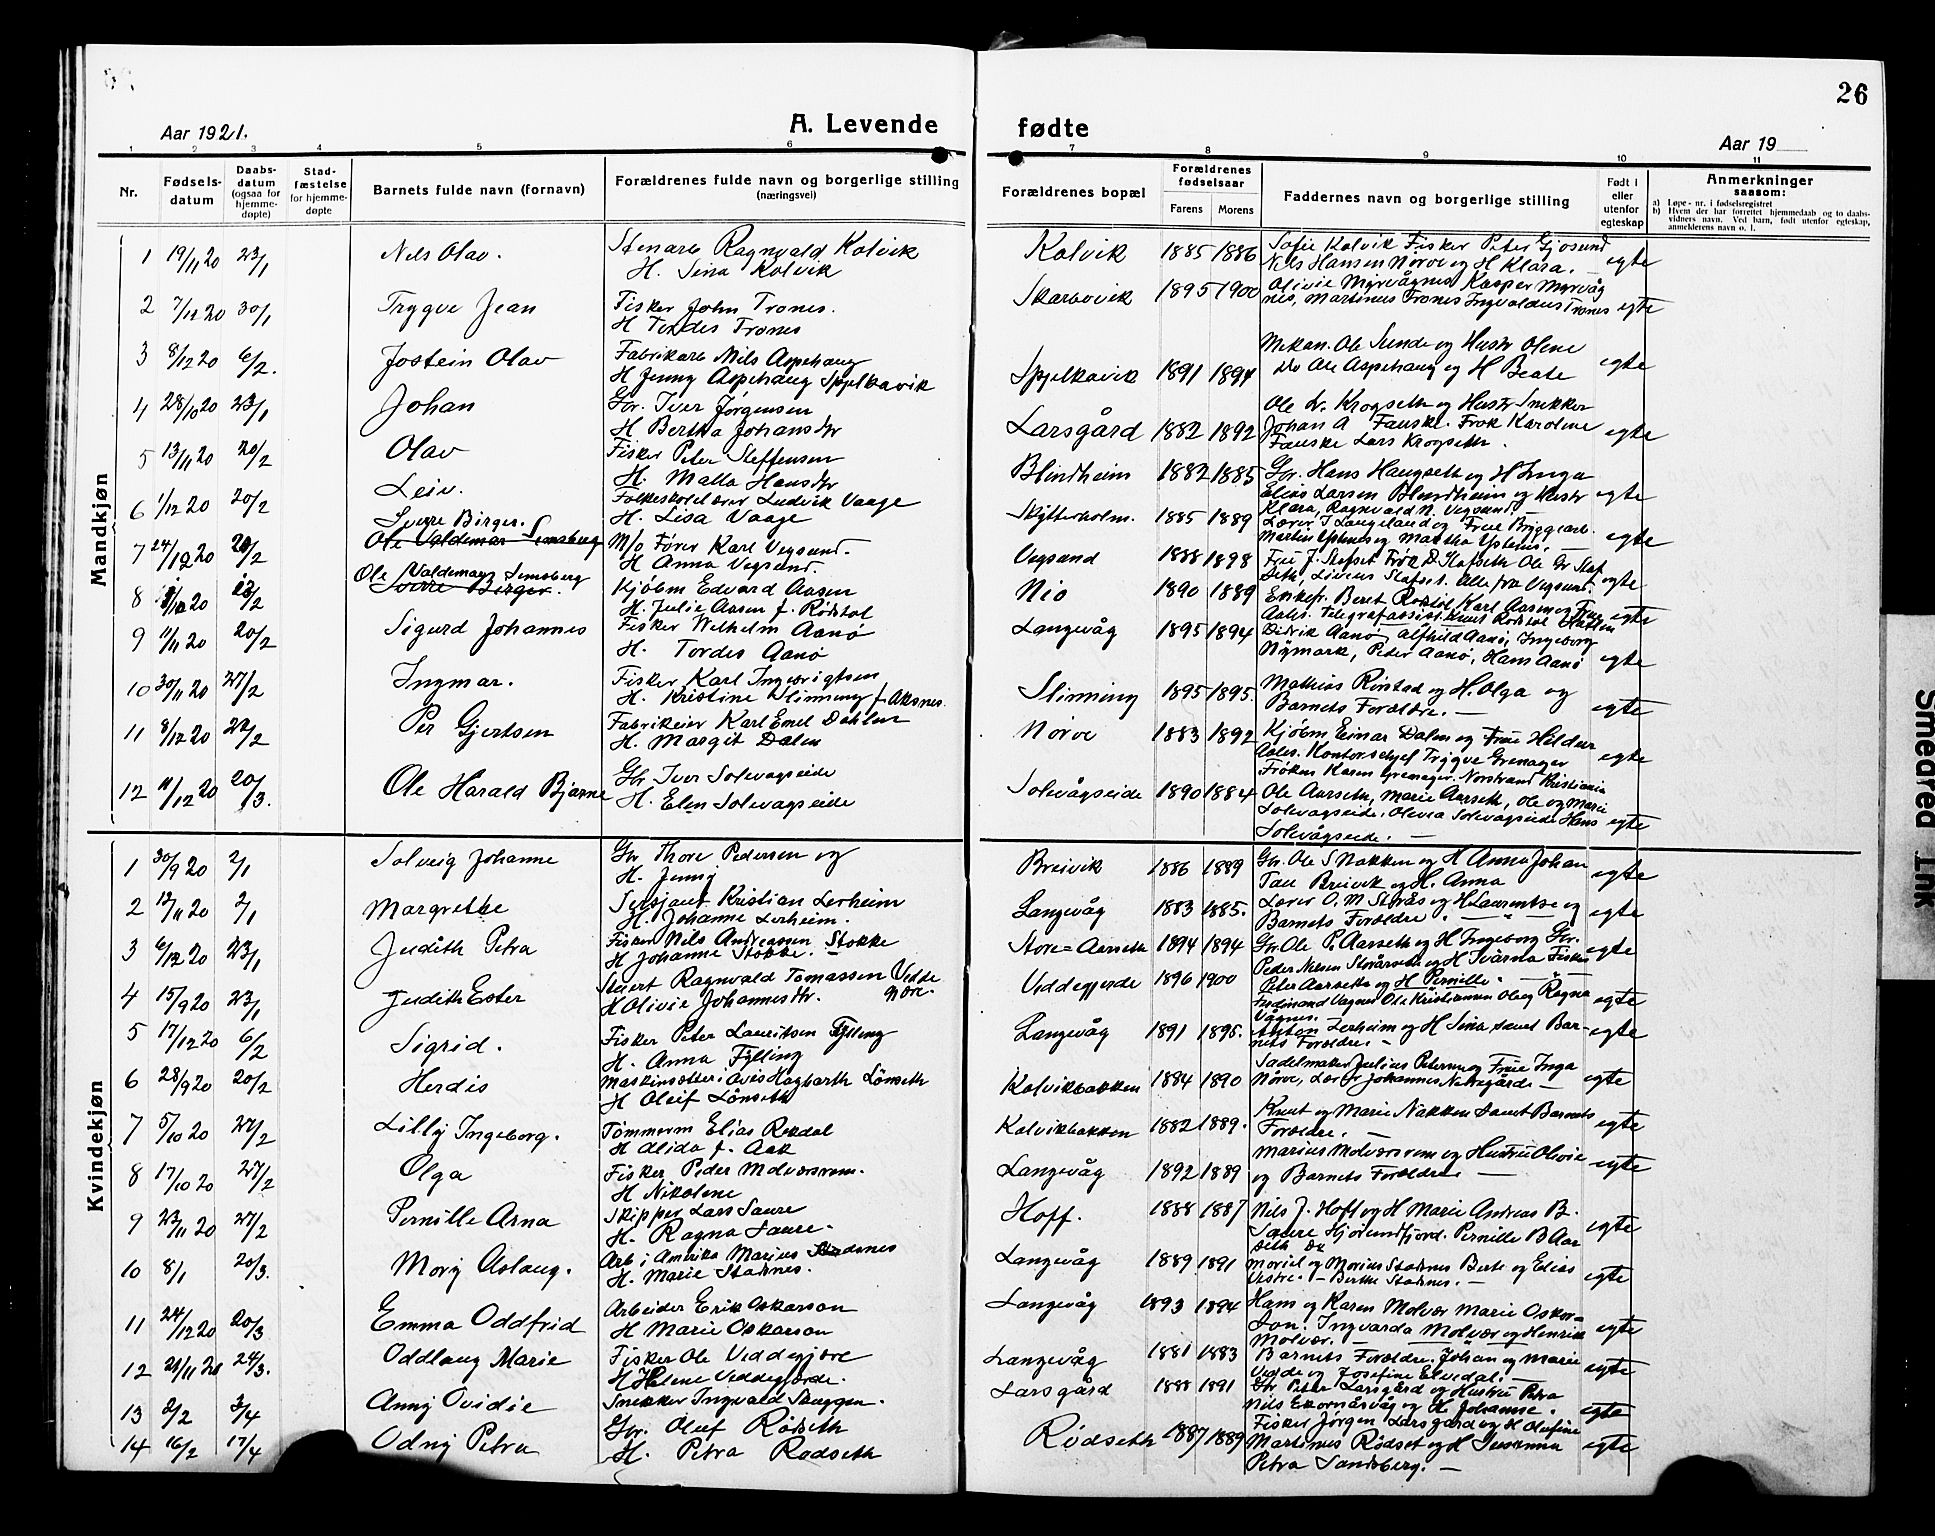 26
Aar 1921.
A. Levende fødte
Aar 19
1 2 3 4 5 6 7 8 9 10 11
Nr.
Fødsels-datum
Daabs-datum (ogsaa for hjemme-døpte)
Stad-fæstelse for hjemme-døpte
Barnets fulde navn (fornavn)
Forældrenes fulde navn og borgerlige stilling (næringsvei)
Forældrenes bopæl
Forældrenes fødselsaar
Farens Morens
Faddernes navn og borgerlig stilling
Født i eller utenfor egteskap
Anmerkninger saasom:
a) Løpe-nr. i fødselsregistret
b) Hvem der har forrettet hjemmedaab og to daabsvidners navn. Ved barn, født utenfor egteskap, anmelderens navn o. l.
Mandkjøn
1 19/11 20 23/1 Nils Olav. Ragnvald Kolvik
H. Sina Kolvik
Kolvik 1885 1886 Sofie Kolvik Fisker Peter Gjosund
Nils Hansen Nørve og H Klara. egte
2 7/12 20 30/1 Trygve Jean Fisker John Trones.
H Trones
Skarbøvik 1895 1900 Olivie Myrvågnes Kasper Myrvåg
nes, Martinus Trones Ingvaldus Trones egte
3 8/12 20 6/2. Jostein Olav Fabrikarb Nils Aspehaug
H Jenny Aspehaug Spjelkavik
Spjelkavik 1891 1894 Mekan. Ole Sunde og Hustr Oline
Do Ole Aspehaug og H Beate egte
4 28/10 20 23/1 Johan Gbr. Iver Jørgensen
H Bertha Johansdtr
Larsgård 1882 1892 Ole Kr. Krogseth og Hustr Snekker
Johan A Fauske. Frøk Karoline
Fauske Lars Krogseth. egte
5 13/11 20 20/2 Olav Fisker Peter Steffensen
H. Malla Hansdtr
Blindheim 1882 1885 Gbr. Hans Haugseth og H Inga
Elias Larsen Blindheim og Hustr
Klara, Ragnvald N. Vegsund egte
6 1/12 20 20/2 Leiv. Folkeskolelærer Ludvik Vaage
H. Lisa Vaage
Skytterholm. 1885 1889 Lærer J Langeland og Frue Bryggearb.
egte
Sverre Birger.
7 24/12 20 20/2 Ole Valdemar M/o Fører Karl Vegsund.
H Anna Vegsund.
Vegsund 1888 1898 egte
Ole Valdemar
8 20 13/2 Sverre Birger. Kjøbm Edvard Aasen
H. Julie Aasen f. Rødstol
Nio 1890 1889 Karl Aasen og Frue egte
9 11/11 20 20/2 Sigurd Johannes Fisker Wilhelm Aanø
H. Tordes Aanø
Langevåg 1895 1894 Didrik Aanø Alfhild Aanø, Ingeborg
Nymark, Peter Aanø, Hans Aanø egte
10 30/11 20 27/2 Ingmar. Fisker Karl Ingebrigtsen
H. Kristine Slinning f Aksnes.
Slinning 1895 1895. Mathias Rinstad og H. Olga og
Barnets Forældre. egte
11 8/12 20 Per Gjertsen Fabrikeier Karl Emil Dahlen
H. Margit Dalen
Nørve 1883 1892 Kjøbm Einar Dalen og Frue Hildur
Aales. Kontorschef Trygve Grenager
Frøken Karen Grenager. Nordstrand Kristiania egte
12 11/12 20 20/3. Ole Harald Bjarne Gbr Iver Solevagseide
H. Elen Solevagseide
Solevågseide 1890 1884 Ole Aarseth, Marie Aarseth, Ole og Marie
Solevagseide. Olevia Solevagseide Hans
Solevågseide. egte
Kvindekjøn
1 30/9 20 2/1 Solveig Johanne Gbr Thore Pedersen og
H. Jenny
Breivik 1886 1889 Gbr. Ole S Nakken og H Anna Johan
Breivik og H. Anna egte
2 13/11 20 2/1 Margrethe Sersjant Kristian Lerheim
H. Johanne Lerheim.
Langevåg 1883 1885. Lærer O. M Strås og H Laurentse og
Barnets Forældre. egte
3 6/12 20 23/1 Judith Petra Fisker Nils Andreassen Stokke
H Johanne Stokke.
Store=Aarseth 1894 1894 Gbr. Ole P. Aarseth og H Ingeborg Gbr.
Peder Nilsen Storårseth og H Fisker
Peter Aarseth og H Pernille egte
4 15/9 20 23/1 Judith Ester Ragnvald Tomassen Vedde
H Olivie Johannesdtr. gjære.
Veddegjerde 1896 1900 Ferdinand Vagnes Ole Kristiansen Ragna
Vågnes. egte
5 17/12 20 6/2 Sigrid. Fisker Peter Lauritsen Fylling
H. Anna Fylling
Langevåg 1891 1895. Anton Lerheim og H Sina samt Bar-
nets Forældre. egte
6 28/9 20 20/2 Herdis Maskinsetter i Avis Hagbarth Lønseth
H Oleif Lønseth
Kolvikbakken 1884 1890 Sadelmaker Julius Petersen og Frue Inga
Nørve, Lærer Johannes egte
7 5/10 20 27/2 Lilly Ingeborg. Tømmerm Elias Rekdal
H Alida f. Aak
Kolvikbakken 1882 1889. Knut og Marie Nakken samt Barnets
Forældre. egte
8 17/10 20 27/2 Olga Fisker Peder Molværsrem.
H Nikoline
Langevåg 1892 1889 Marius Molværsrem og Hustru Olivie
og Barnets Forældre egte
9 23/11 20 27/2 Pernille Arna Skipper Lars Saure
H. Ragna Saure.
Hoff. 1888 1887 Nils J. Hoff og H Marie Andreas B.
Saure Hjørundfjord. Pernille B Aar
seth egte
10 8/1 20/3. Mary Aslaug. Arb i Amerika Marius Stadsnes
H. Marie Stadsnes.
Langevåg 1889 1891 og Marius Stadsnes Berte og Elias
Vestre. Berthe Stadsnes. egte
11 24/12 20 20/3 Emma Oddfrid Arbeider Erik Oskarson
H Marie Oskarson
Langevåg 1893 1894 Hans og Karen Molvær Marie Oskar=
son. Ingvarda Molvær og Henrik
Molvær. egte
12 21/11 20 24/3. Oddlaug Marie Fisker Ole Veddegjære
H Helene Veddegjerde.
Langevåg 1881 1883 Barnets Forældre. Johan og Marie
Vedde og Josefine Elvedal. egte
13 2/2 3/4 Anny Ovidie Snekker Ingvald Skuggen.
Larsgård 1888 1891 Gbr Peter Larsgård og Hustru Petra
Nils Ekornåsvåg og H. Johanne. egte
14 16/2 17/4 Odny Petra Gbr. Oluf Rødseth
H. Petra Rødseth
Rødseth 1887 1889 Fisker Jørgen Larsgård og H Olufine
Martinus Rødset og H Susanna
Petra Sandberg. egte
Smeared Ink